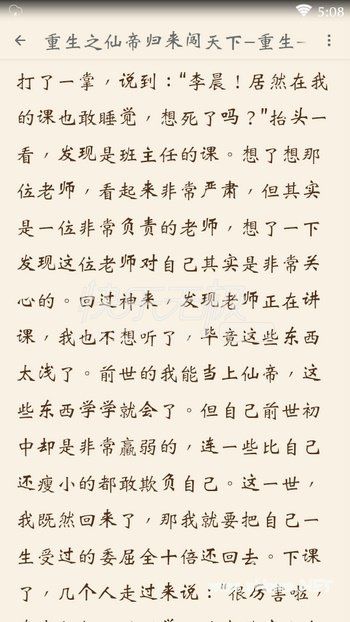 5:08
重生之仙帝归来闯天下-重生-
打了一掌，说到：“李晨！居然在我
的课也敢睡觉，想死了吗？”抬头一
看，发现是班主任的课。想了想那
位老师，看起来非常严肃，但其实
是一位非常负责的老师，想了一下
发现这位老师对自己其实是非常关
心的。回过神来，发现老师正在讲
课，我也不想听了，毕竟这些东西
太浅了。前世的我能当上仙帝，这
些东西学学就会了。但自己前世初
中却是非常羸弱的，连一些比自己
还瘦小的都敢欺负自己。这一世，
我既然回来了，那我就要把自己一
生受过的委屈全十倍还回去。下课
了，几个人走过来说：“很厉害啦，